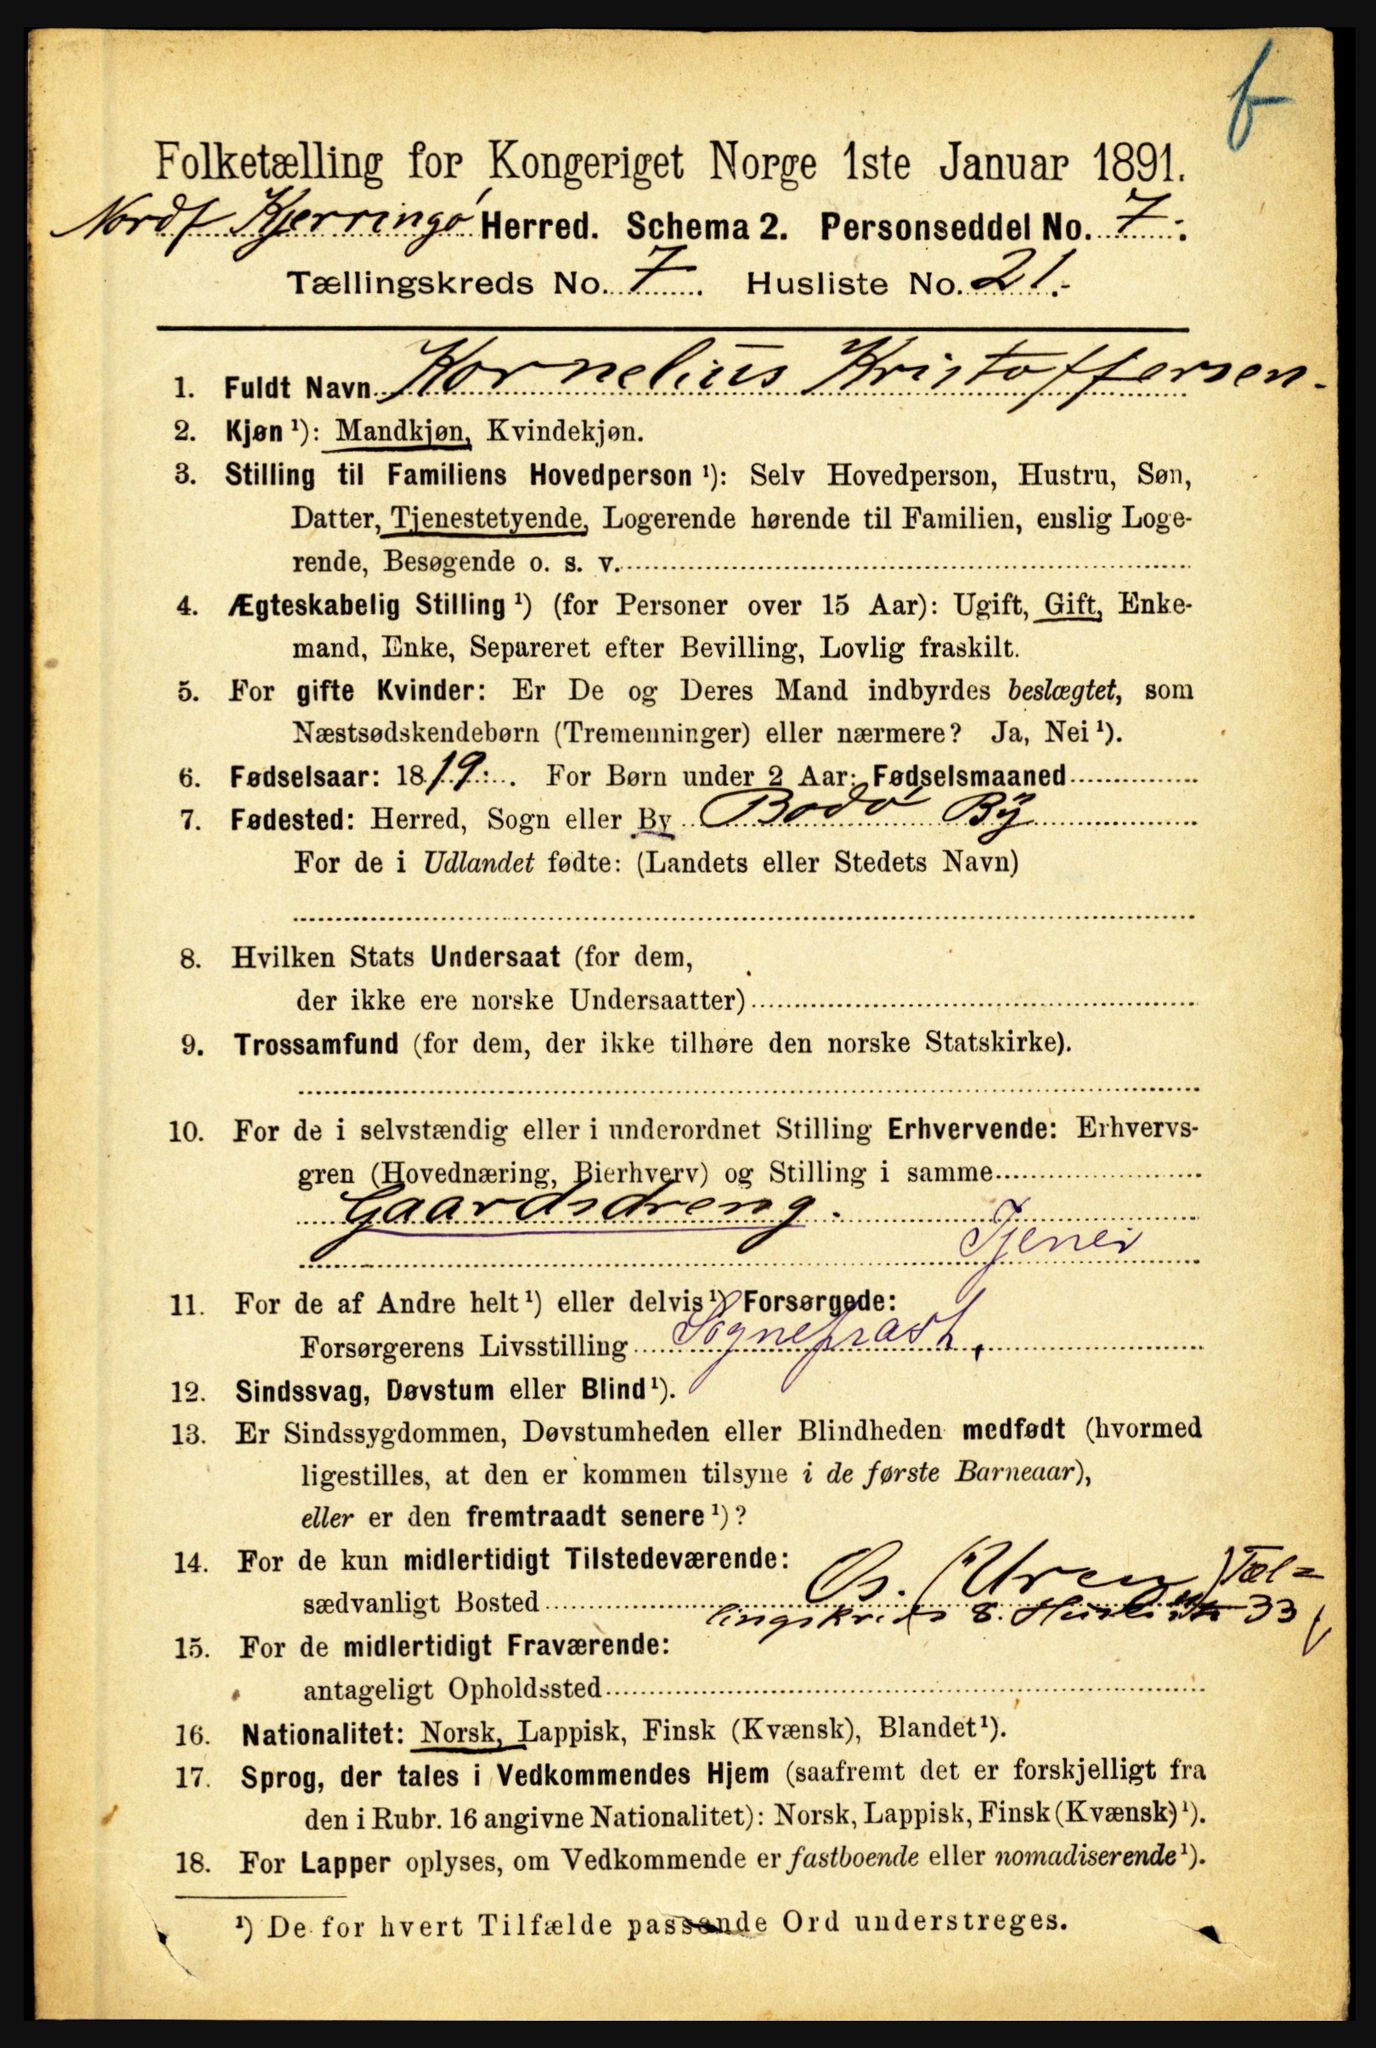 b
Folketælling for Kongeriget Norge 1ste Januar 1891.
Nordf Kjerringø Herred. Schema 2. Personseddel No. 7.
Tællingskreds No. 7. Husliste No. 21.
1. Fuldt Navn Kornelius Kristoffersen.
2. Kjøn ¹): Mandkjøn, Kvindekjøn.
3. Stilling til Familiens Hovedperson ¹): Selv Hovedperson, Hustru, Søn,
Datter, Tjenestetyende, Logerende hørende til Familien, enslig Loge-
rende, Besøgende o. s. v.
4. Ægteskabelig Stilling ¹) (for Personer over 15 Aar): Ugift, Gift, Enke-
mand, Enke, Separeret efter Bevilling, Lovlig fraskilt.
5. For gifte Kvinder: Er De og Deres Mand indbyrdes beslægtet, som
Næstsødskendebørn (Tremenninger) eller nærmere? Ja, Nei ¹).
6. Fødselsaar: 1819. For Børn under 2 Aar: Fødselsmaaned
7. Fødested: Herred, Sogn eller By Bodø By
For de i Udlandet fødte: (Landets eller Stedets Navn)
8. Hvilken Stats Undersaat (for dem,
der ikke ere norske Undersaatter)
9. Trossamfund (for dem, der ikke tilhøre den norske Statskirke).
10. For de i selvstændig eller i underordnet Stilling Erhvervende: Erhvervs-
gren (Hovednæring, Bierhverv) og Stilling i samme
Gaardsdreng.
Tjener
11. For de af Andre helt ¹) eller delvis ¹) Forsørgede:
Forsørgerens Livsstilling Sogneprast,
12. Sindssvag, Døvstum eller Blind ¹).
13. Er Sindssygdommen, Døvstumheden eller Blindheden medfødt (hvormed
ligestilles, at den er kommen tilsyne i de første Barneaar),
eller er den fremtraadt senere ¹)?
14. For de kun midlertidigt Tilstedeværende:
sædvanligt Bosted Os. (Uren) Tæl=
lingskreds 8. Husliste 33
15. For de midlertidigt Fraværende:
antageligt Opholdssted
16. Nationalitet: Norsk, Lappisk, Finsk (Kvænsk), Blandet ¹).
17. Sprog, der tales i Vedkommendes Hjem (saafremt det er forskjelligt fra
den i Rubr. 16 angivne Nationalitet): Norsk, Lappisk, Finsk (Kvænsk) ¹).
18. For Lapper oplyses, om Vedkommende er fastboende eller nomadiserende ¹).
¹) De for hvert Tilfælde passende Ord understreges.